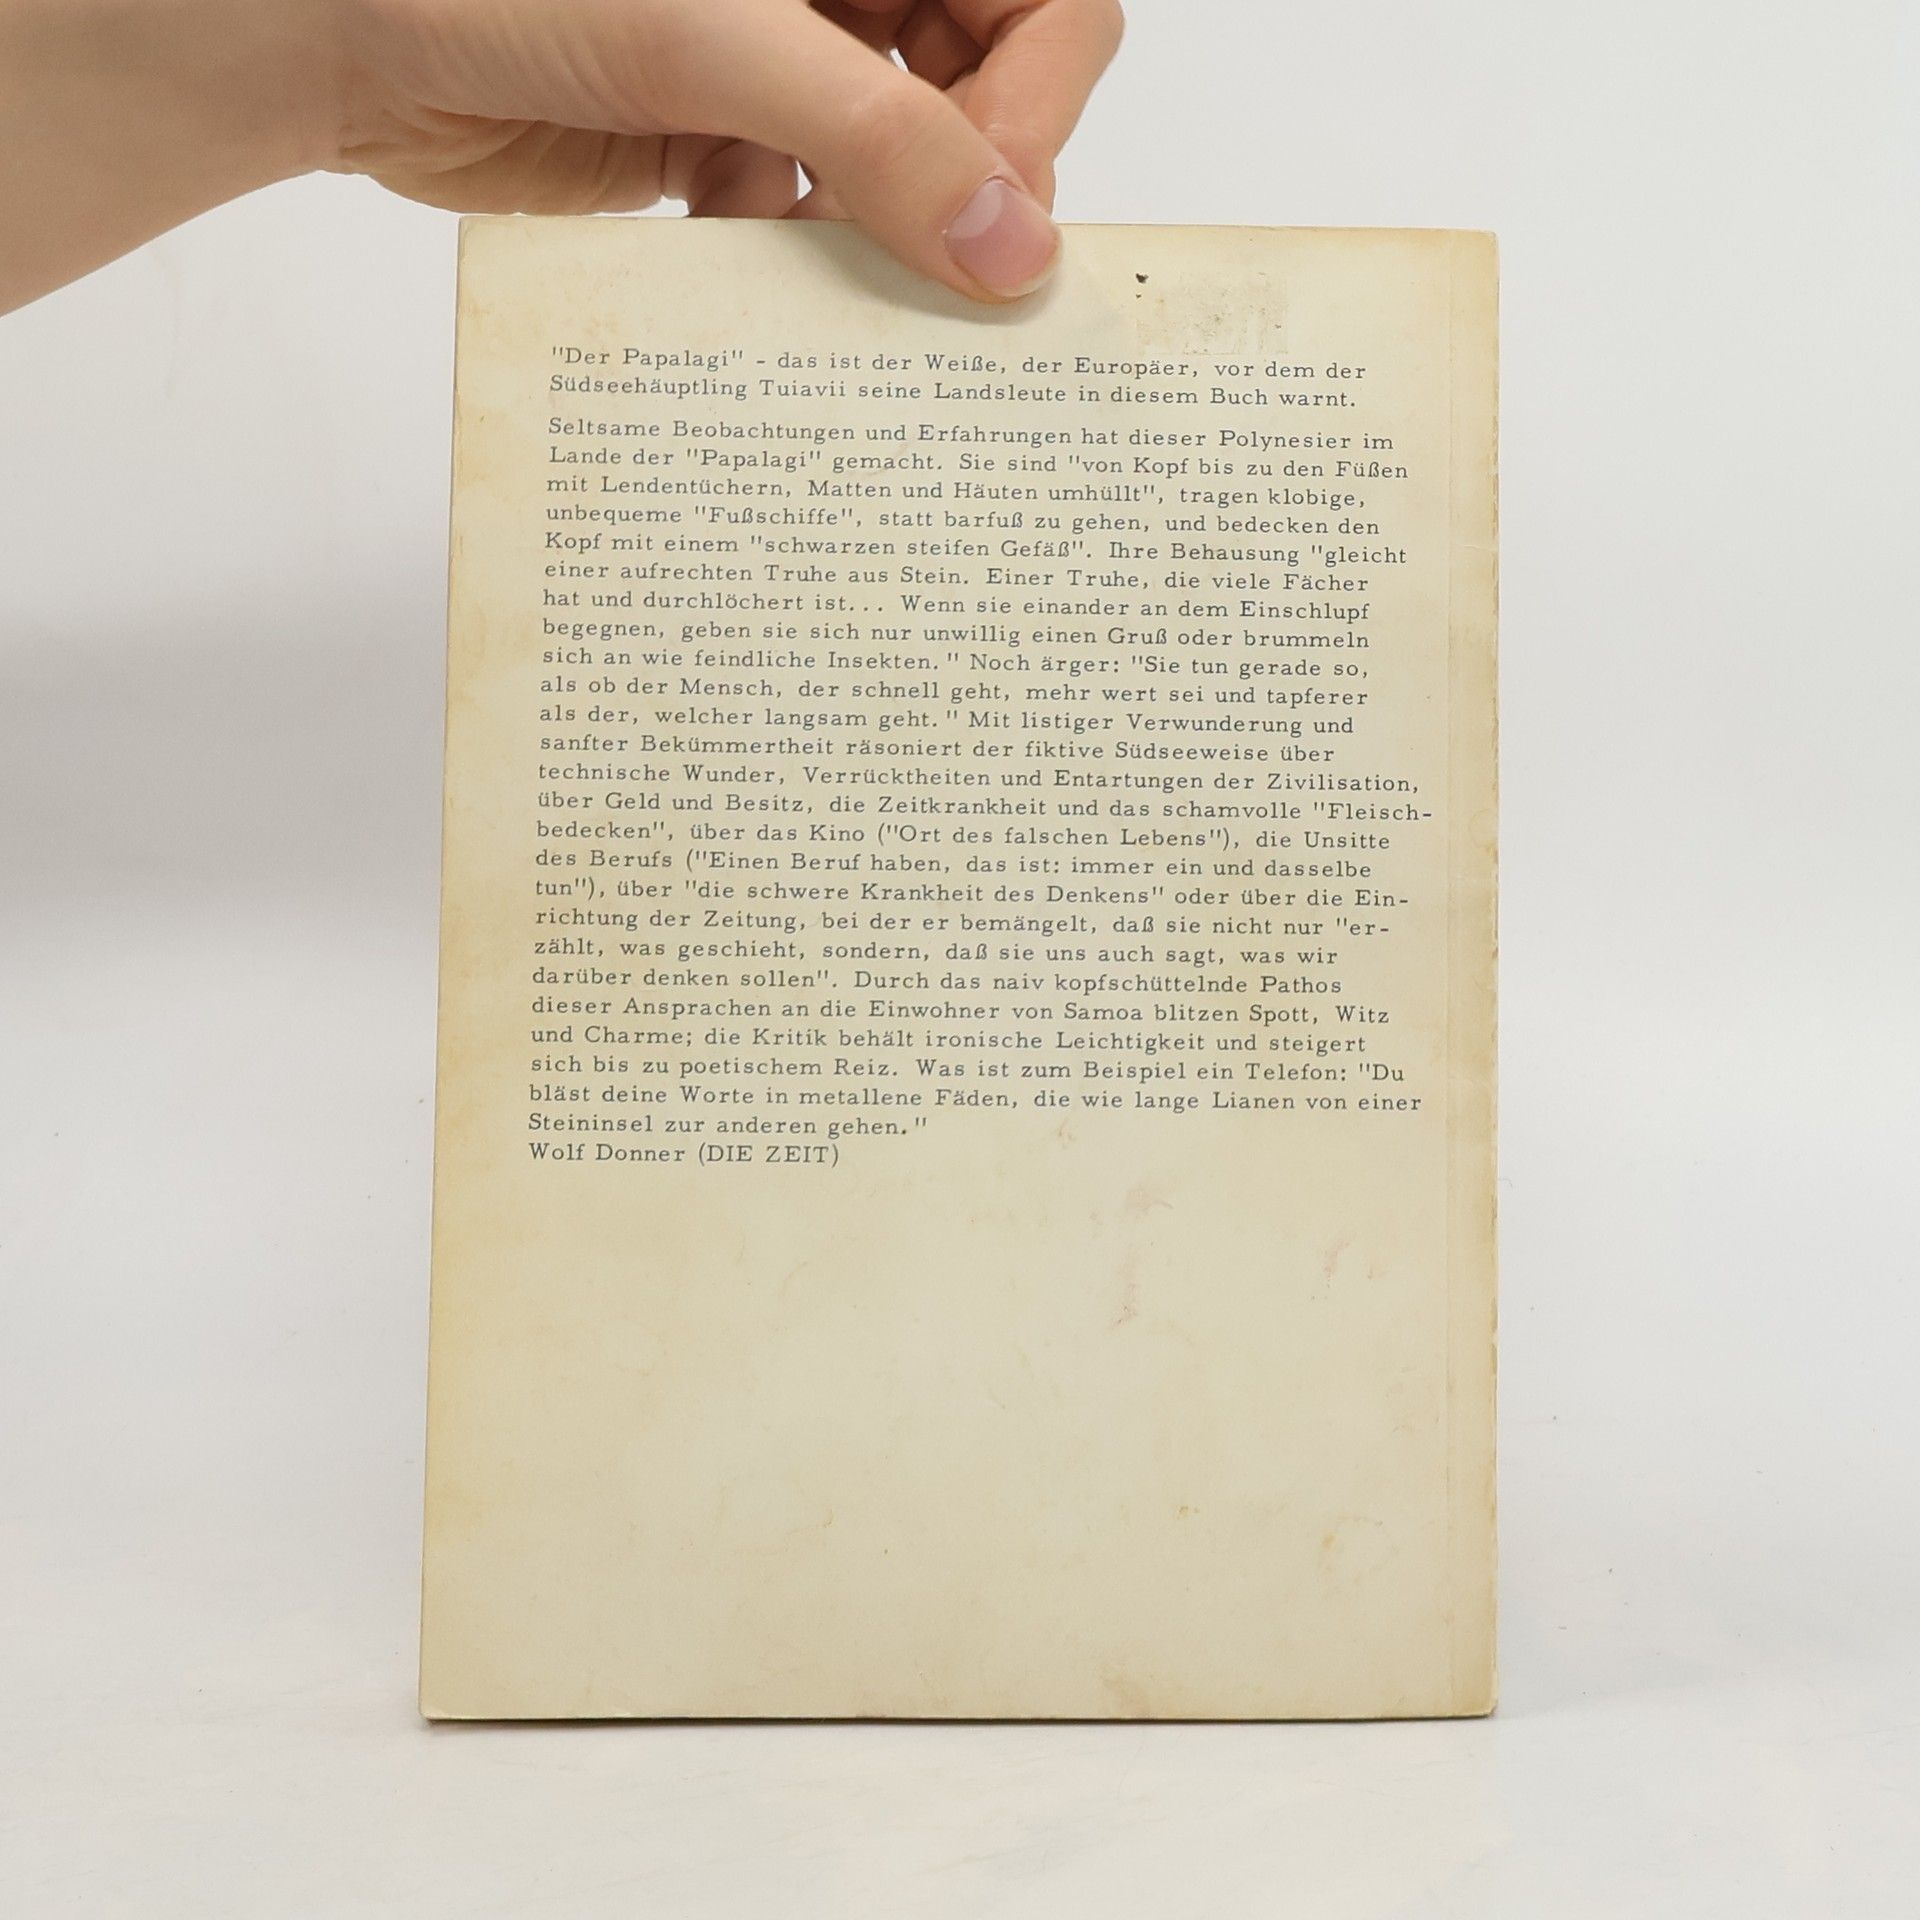 "Der Papalagi" - das ist der Weiße, der Europäer, vor dem der
Südseehäuptling Tuiavii seine Landsleute in diesem Buch warnt.
Seltsame Beobachtungen und Erfahrungen hat dieser Polynesier im
Lande der "Papalagi" gemacht. Sie sind "von Kopf bis zu den Füßen
mit Lendentüchern, Matten und Häuten umhüllt", tragen klobige,
unbequeme "Fußschiffe", statt barfuß zu gehen, und bedecken den
Kopf mit einem "schwarzen steifen Gefäß". Ihre Behausung "gleicht
einer aufrechten Truhe aus Stein. Einer Truhe, die viele Fächer
hat und durchlöchert ist... Wenn sie einander an dem Einschlupf
begegnen, geben sie sich nur unwillig einen Gruß oder brummeln
sich an wie feindliche Insekten." Noch ärger: "Sie tun gerade so,
als ob der Mensch, der schnell geht, mehr wert sei und tapferer
als der, welcher langsam geht." Mit listiger Verwunderung und
sanfter Bekümmertheit räsoniert der fiktive Südseeweise über
technische Wunder, Verrücktheiten und Entartungen der Zivilisation,
über Geld und Besitz, die Zeitkrankheit und das schamvolle "Fleisch-
bedecken", über das Kino ("Ort des falschen Lebens"), die Unsitte
des Berufs ("Einen Beruf haben, das ist: immer ein und dasselbe
tun"), über "die schwere Krankheit des Denkens" oder über die Ein-
richtung der Zeitung, bei der er bemängelt, daß sie nicht nur "er-
zählt, was geschieht, sondern, daß sie uns auch sagt, was wir
darüber denken sollen". Durch das naiv kopfschüttelnde Pathos
dieser Ansprachen an die Einwohner von Samoa blitzen Spott, Witz
und Charme; die Kritik behält ironische Leichtigkeit und steigert
sich bis zu poetischem Reiz. Was ist zum Beispiel ein Telefon: "Du
bläst deine Worte in metallene Fäden, die wie lange Lianen von einer
Steininsel zur anderen gehen."
Wolf Donner (DIE ZEIT)